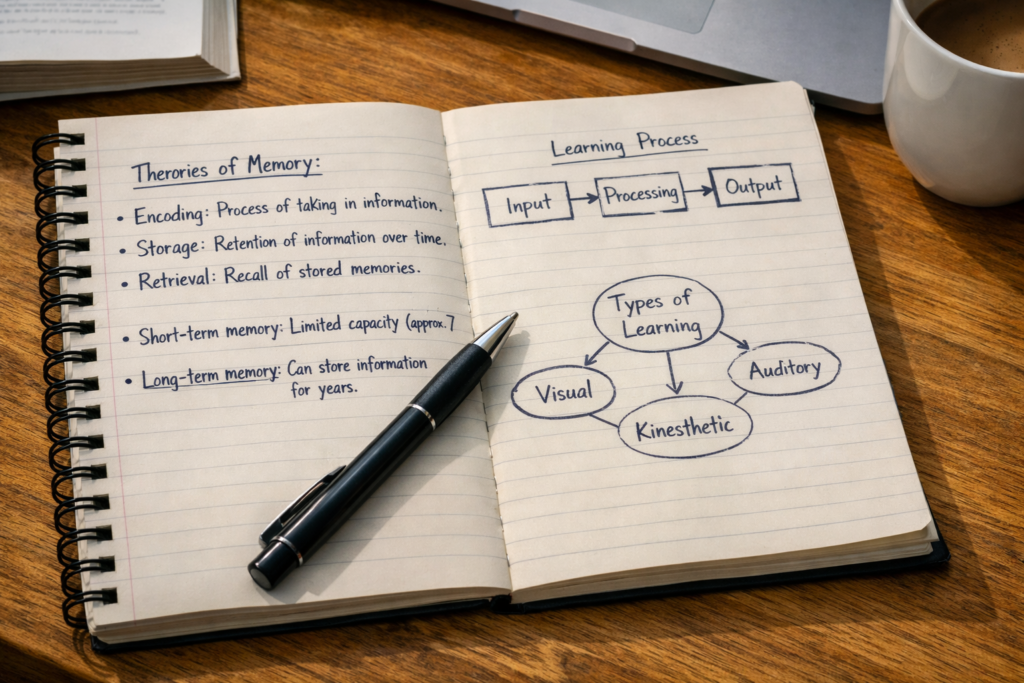 Therories of Memory:
• Encoding: Process of taking in information.
• Storage: Retention of information over time.
• Retrieval: Recall of stored memories.
• Short-term memory: Limited capacity (approx. 7
• Long-term memory: Can store information
for years.
Learning Process
Input
Processing
Output
Types of
Learning
Visual
Auditory
Kinesthetic